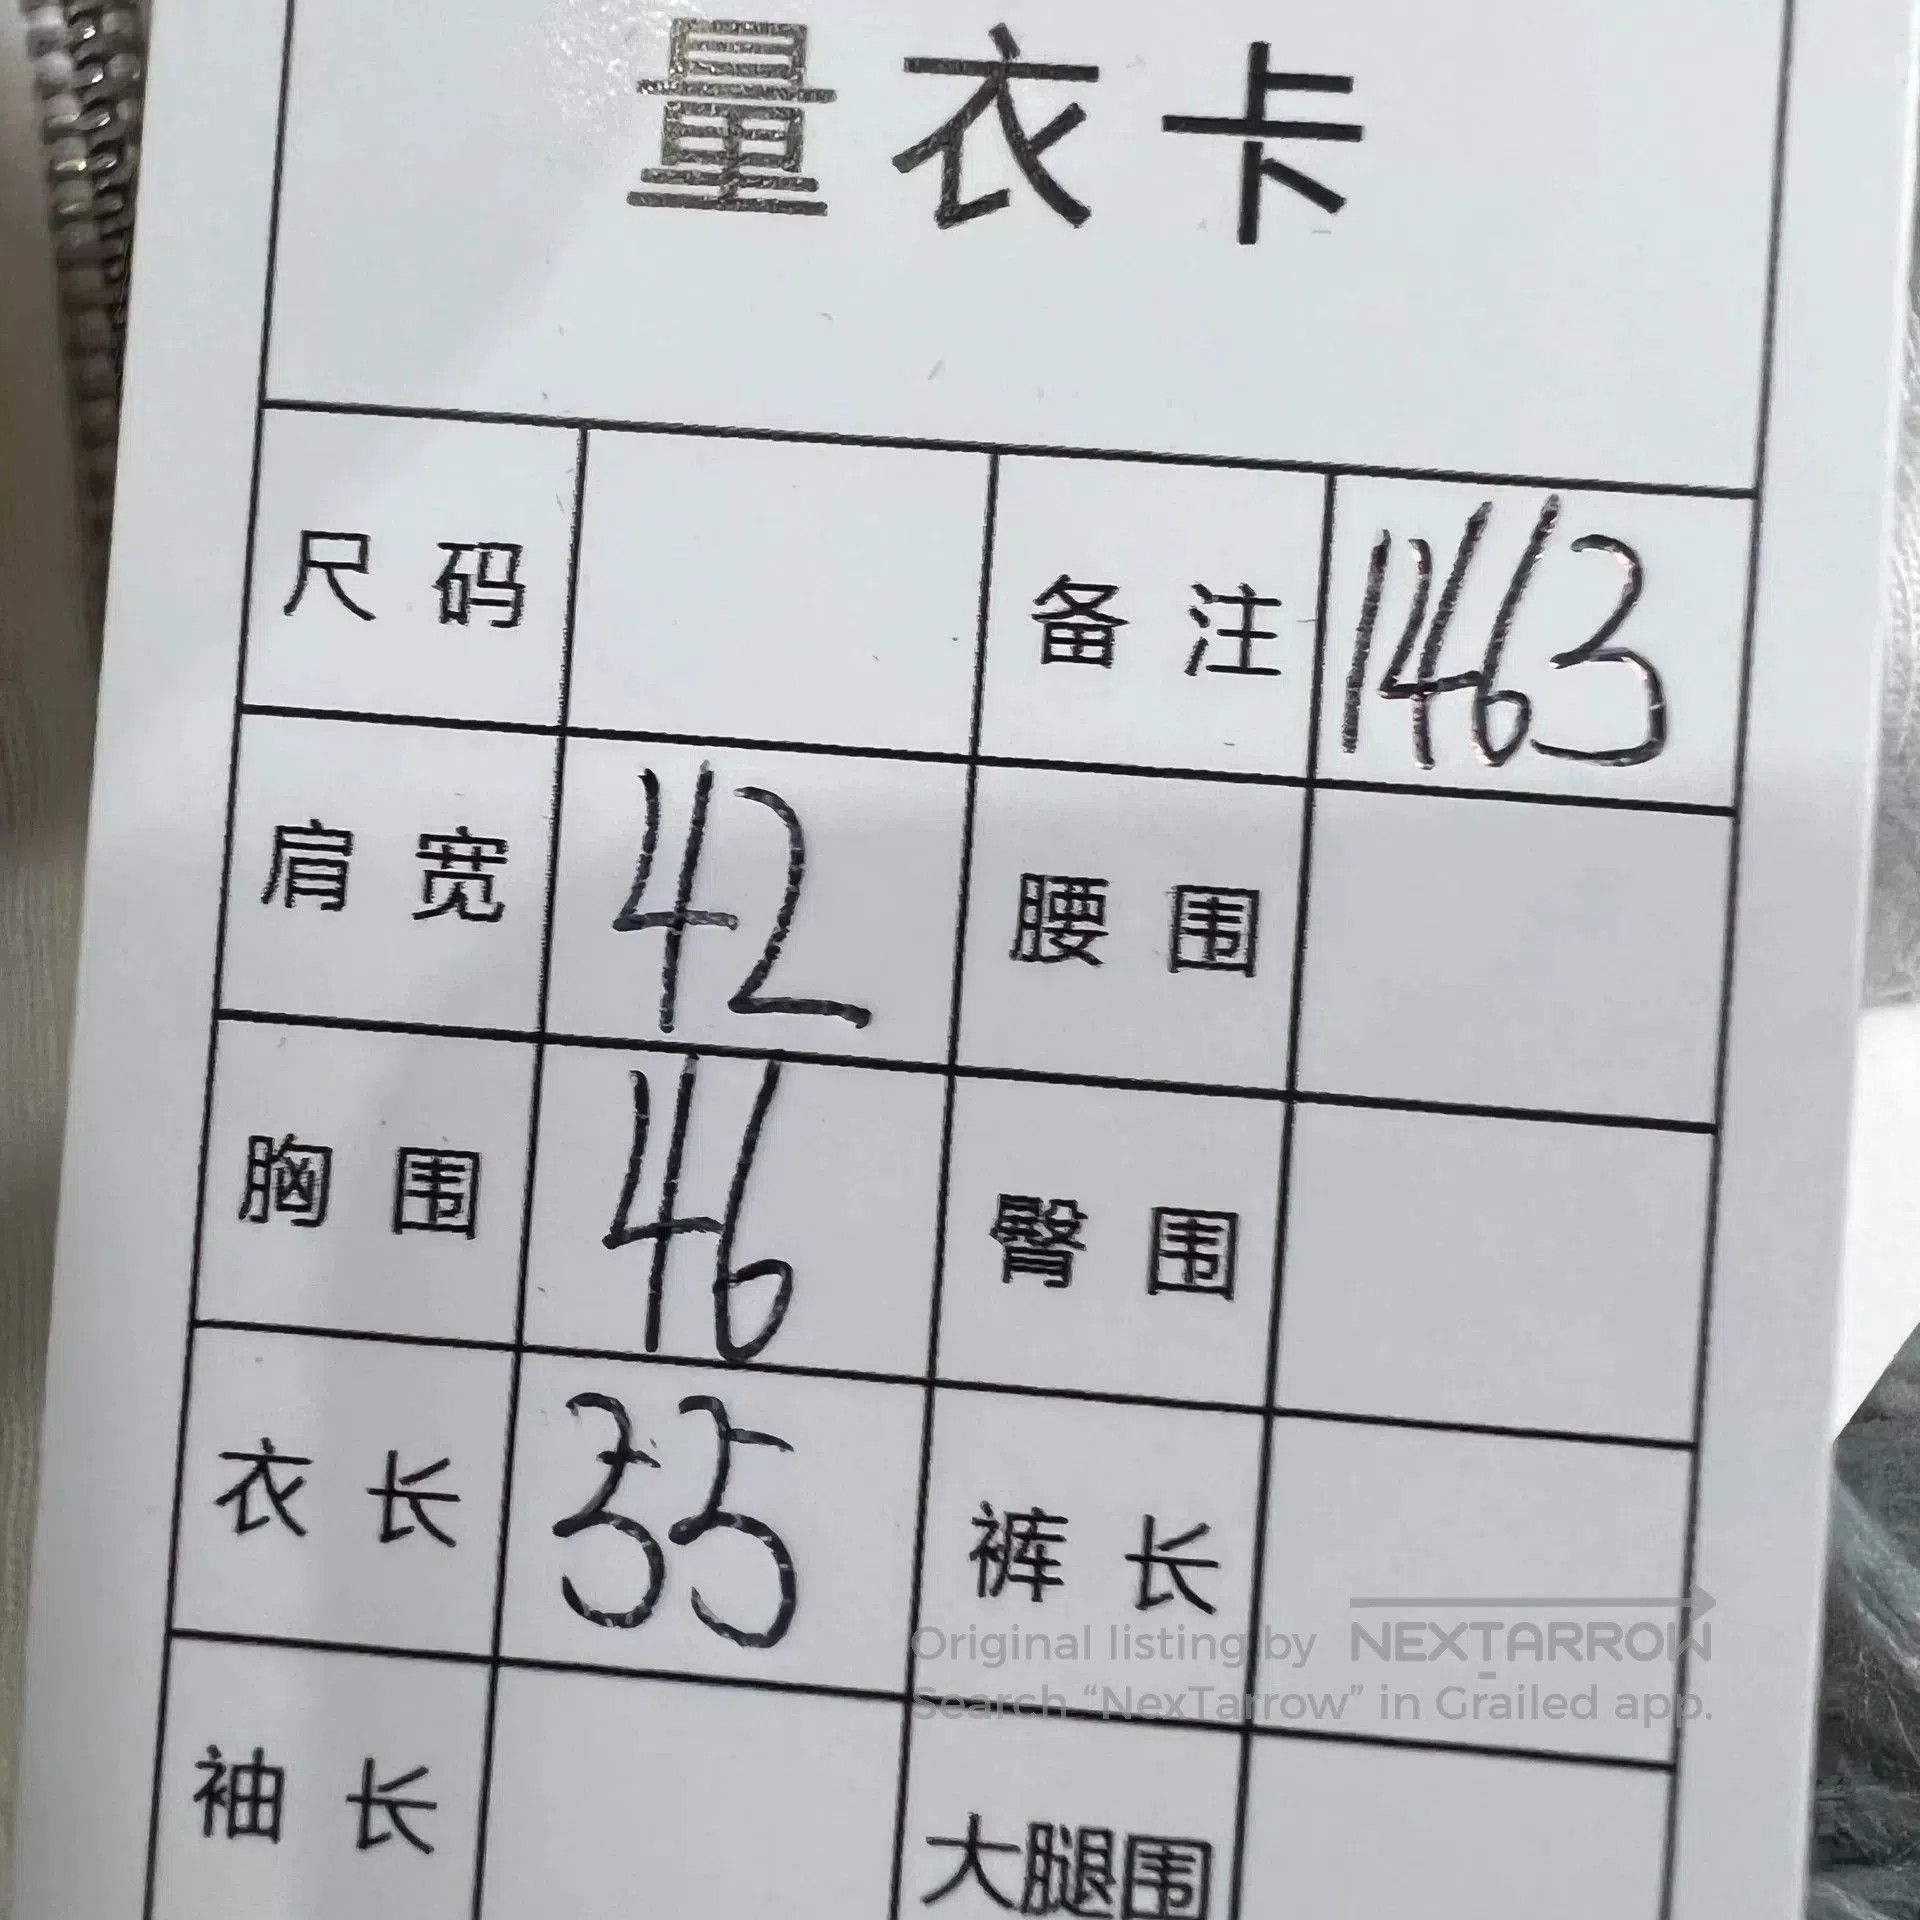 量衣卡
尺码 备注 1463
肩宽 42 腰围
胸围 46 臀围
衣长 35 裤长
袖长 大腿围
Original listing by NEXTARROW
Search “NexTarrow” in Grailed app.